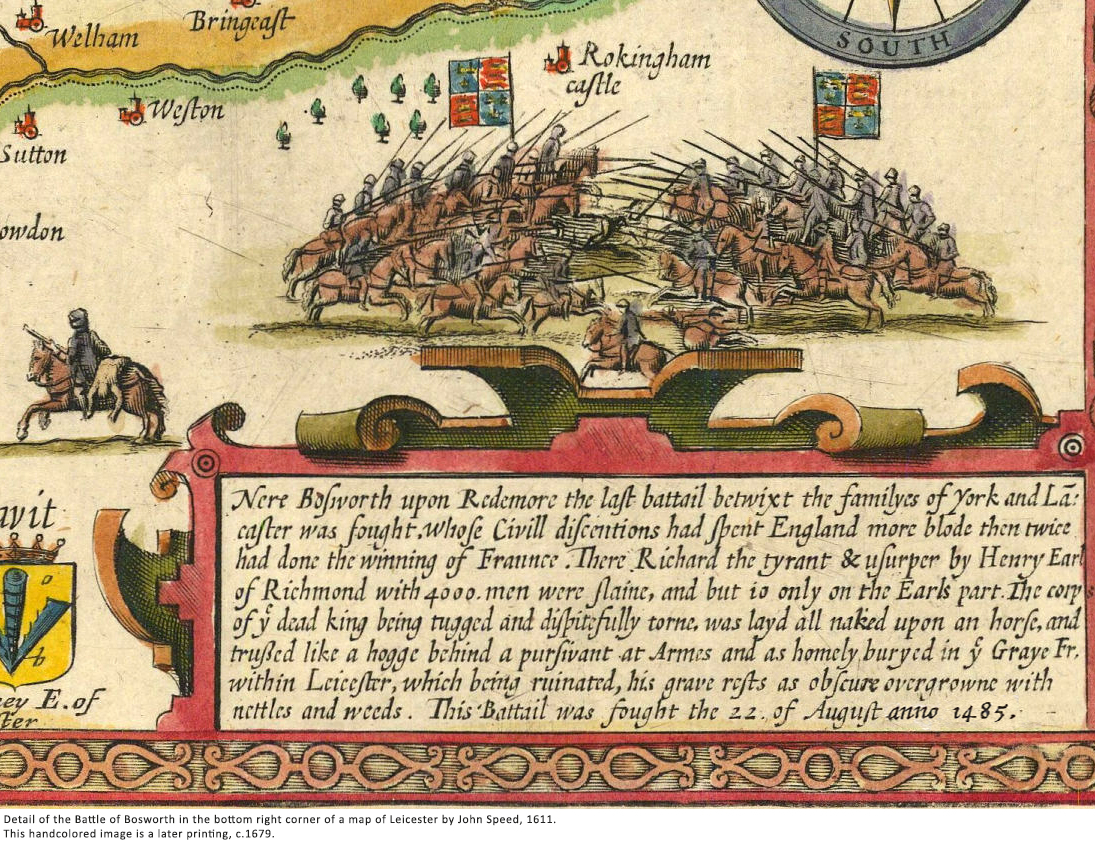 Welham
Bringeast
SOUTH
Rokingham
castle
Weston
Sutton
owdon
wit
Nere Bosworth upon Redemore the last battail betwixt the familyes of York and Lā:
caster was fought. Whose Civill discentions had spent England more blode then twice
had done the winning of Fraunce. There Richard the tyrant & usurper by Henry Earl
of Richmond with 4000. men were slaine, and but 10 only on the Earls part. The corps
of yͤ dead king being tugged and dispitefully torne, was layd all naked upon an horse, and
trussed like a hogge behind a pursivant at Armes and as homely buryed in yͤ Graye Fr.
within Leicester, which being ruinated, his grave rests as obscure overgrowne with
nettles and weeds. This Battail was fought the 22. of August anno 1485.
a
b
ey E. of
ster
Detail of the Battle of Bosworth in the bottom right corner of a map of Leicester by John Speed, 1611.
This handcolored image is a later printing, c.1679.